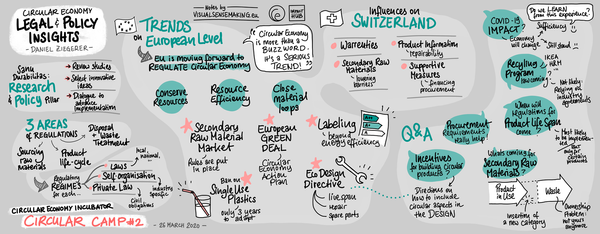 CIRCULAR ECONOMY
LEGAL & POLICY
INSIGHTS
- DANIEL ZIEGERER -
Sanu
Durabilitas:
Research
& Policy
Pillar
Review studies
Select innovative
ideas
Dialogue to
advance
implementation
3 AREAS
of REGULATIONS
Disposal
+ Waste
Treatment
Sourcing
raw
materials
Product
life-cycle
Regulatory
REGIMES
for each
LAWS
Self-organisation
Private Law
industry
specific
Civil
obligations
CIRCULAR ECONOMY INCUBATOR
CIRCULAR CAMP #2
- 26 MARCH 2020 -
Notes by
VISUALSENSEMAKING.eu
TRENDS
on
European Level
EU is moving forward to
REGULATE Circular Economy
Circular Economy
is more than a
BUZZWORD.
It's a SERIOUS
TREND!
Conserve
Resources
Resource
Efficiency
Close
material
loops
Secondary
Raw Material
Market
Rules are put
in place
European
GREEN
DEAL
Circular
Economy
Action
Plan
Labelling
beyond
energy efficiency
Ban on
Single Use
Plastics
only 3 years
to adapt
Eco Design
Directive
live span
repair
spare parts
Influences on
SWITZERLAND
Warrenties
Product Information
repairability
Secondary Raw
Materials
lowering
barriers
Supportive
Measures
financing
procurement
Q&A
Procurement
requirements
really help
Incentives
for building circular
products?
Directions
on how to
include circular
aspects in
the DESIGN
Covid-19
IMPACT?
Economy will
change
Do we LEARN
from this experience?
Sufficiency
Recycling
Program
now coming
IKEA
H&M
Not likely.
Relying on
industry
agreements
When will
regulations for
Product Life Span
come?
Most likely
to be
What's coming for
Secondary Raw
MATERIALS?
Product
in Use
Waste
Insertion of
a new category
Ownership
Problem:
not yours
anymore